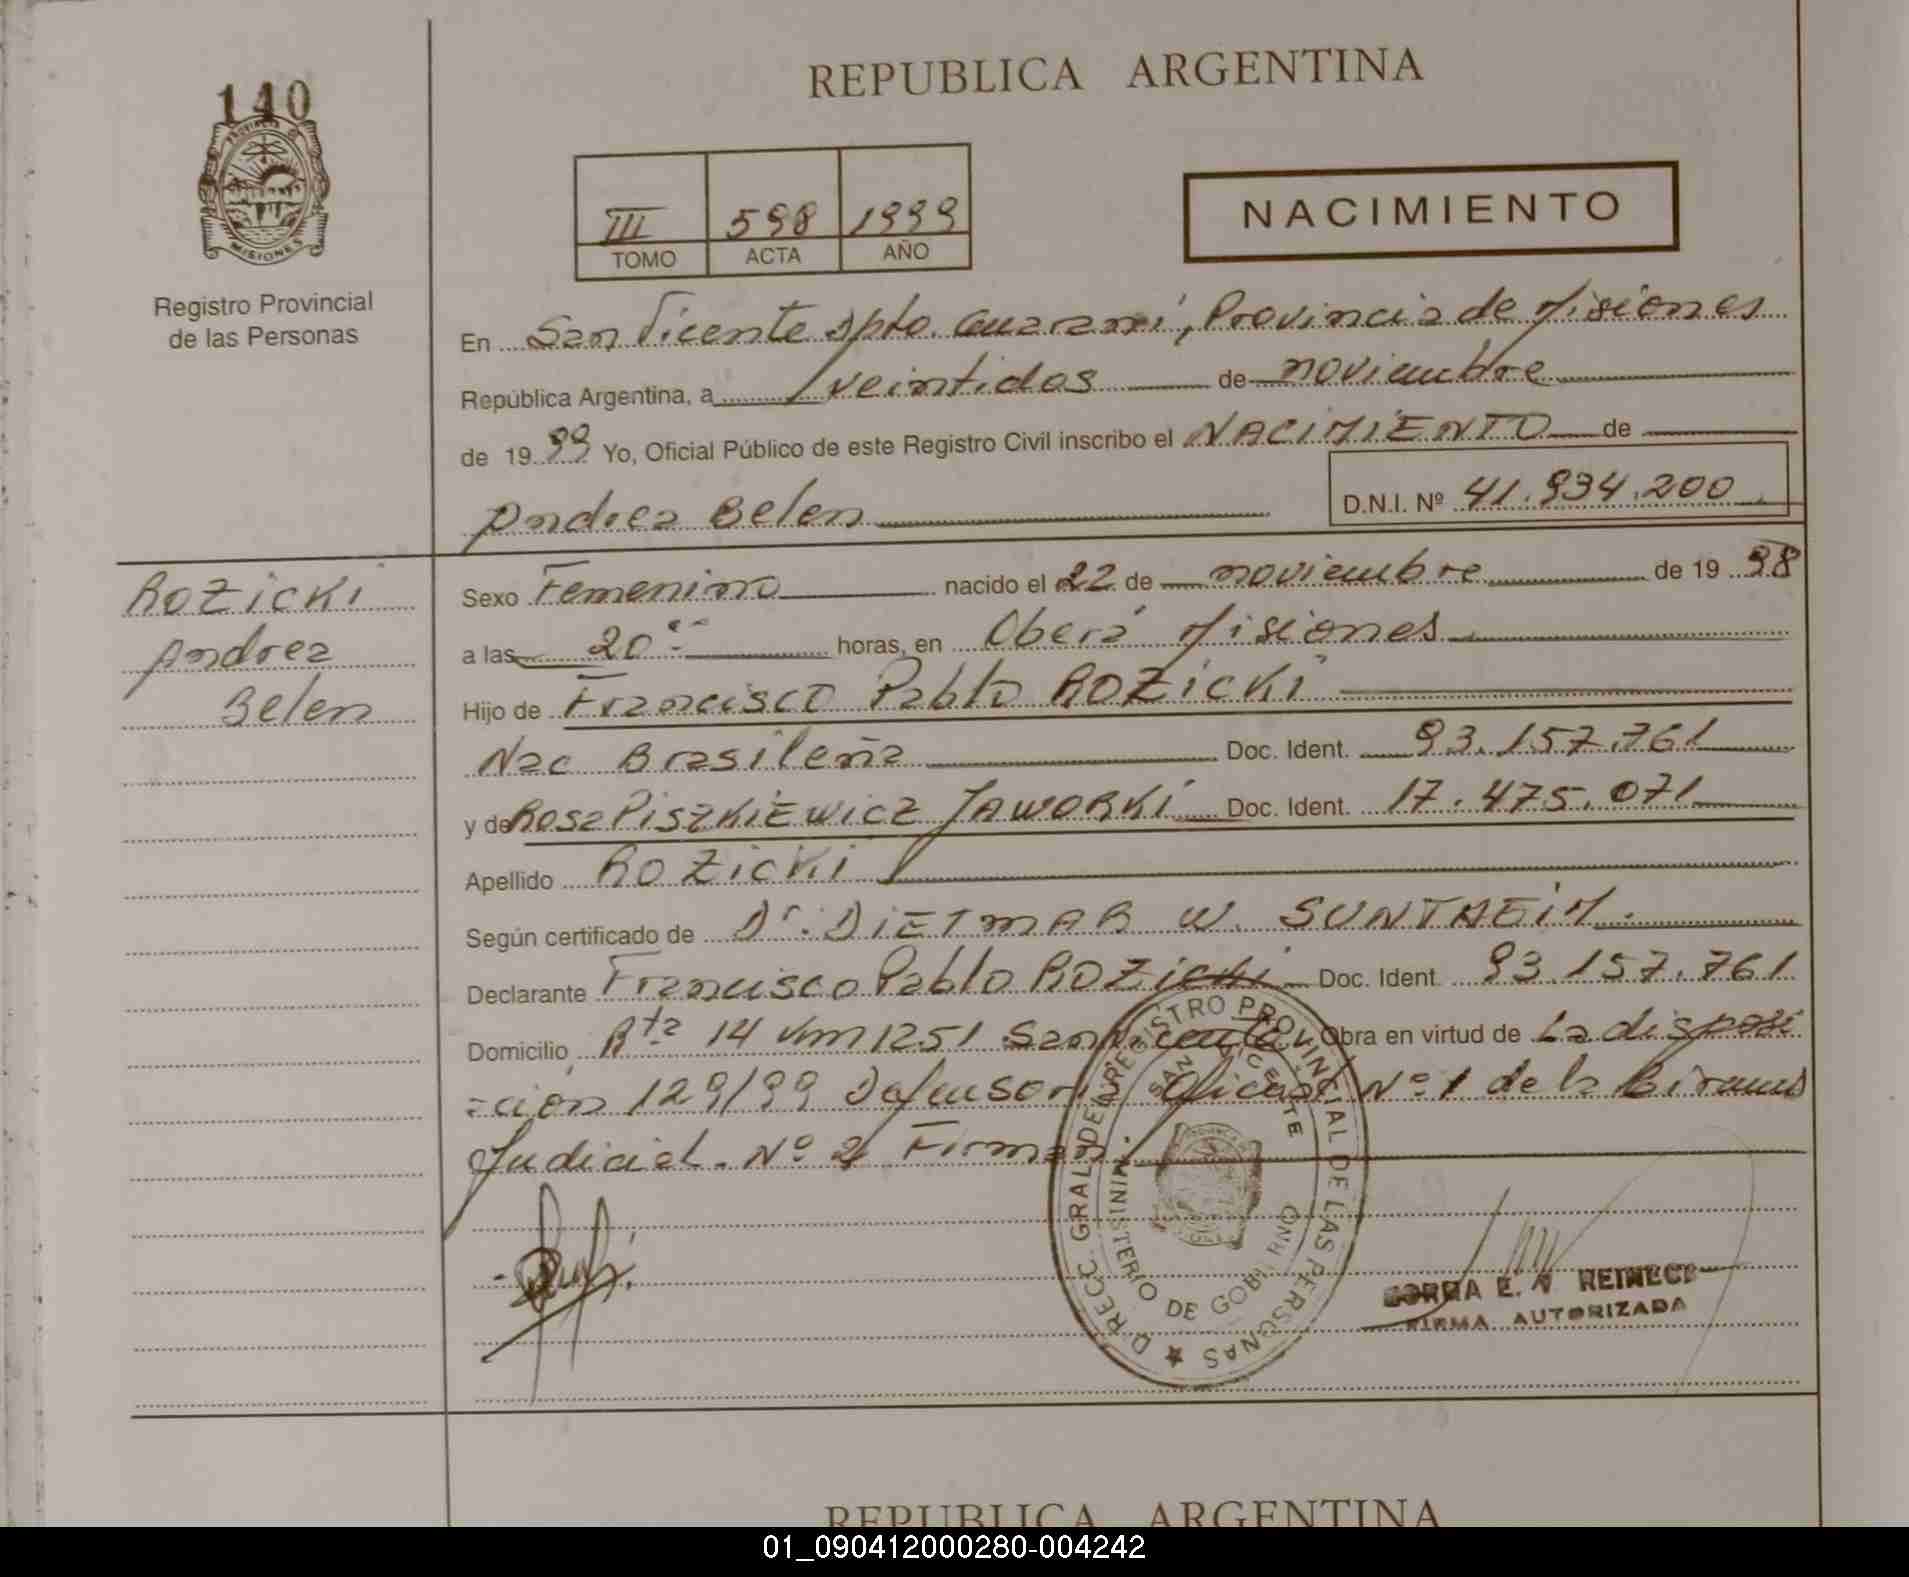 140
PROVINCIA DE
MISIONES
Registro Provincial
de las Personas
REPUBLICA ARGENTINA
III 598 1999
TOMO ACTA AÑO
NACIMIENTO
En San Vicente Dpto. Guaraní, Provincia de Misiones
República Argentina, a veintidos de noviembre
de 19 99 Yo, Oficial Público de este Registro Civil inscribo el NACIMIENTO de
Andrea Belen D.N.I. Nº 41.934.200
ROZICKI
Andrea
Belen
Sexo Femenino nacido el 22 de noviembre de 19 98
a las 20 horas, en Oberá Misiones
Hijo de Francisco Pablo ROZICKI
Nac Brasileña Doc. Ident. 93.157.761
y de Rosa PISZKIEWICZ JAWORKI Doc. Ident. 17.475.071
Apellido ROZICKI
Según certificado de Dr. DIETMAR W. SUNTHEIM.
Declarante Francisco Pablo ROZICKI Doc. Ident. 93.157.761
Domicilio Rta 14 Km 1251 San Vicente Obra en virtud de La disposi
=ción 129/99 Defensoria Oficial Nº 1 de la
Judicial. Nº 2 Firman.
DIRECC. GRAL. DEL REGISTRO PROVINCIAL DE LAS PERSONAS
MINISTERIO DE GOBIERNO
SAN VICENTE
E. REINECK
FIRMA AUTORIZADA
REPUBLICA ARGENTINA
01_090412000280-004242